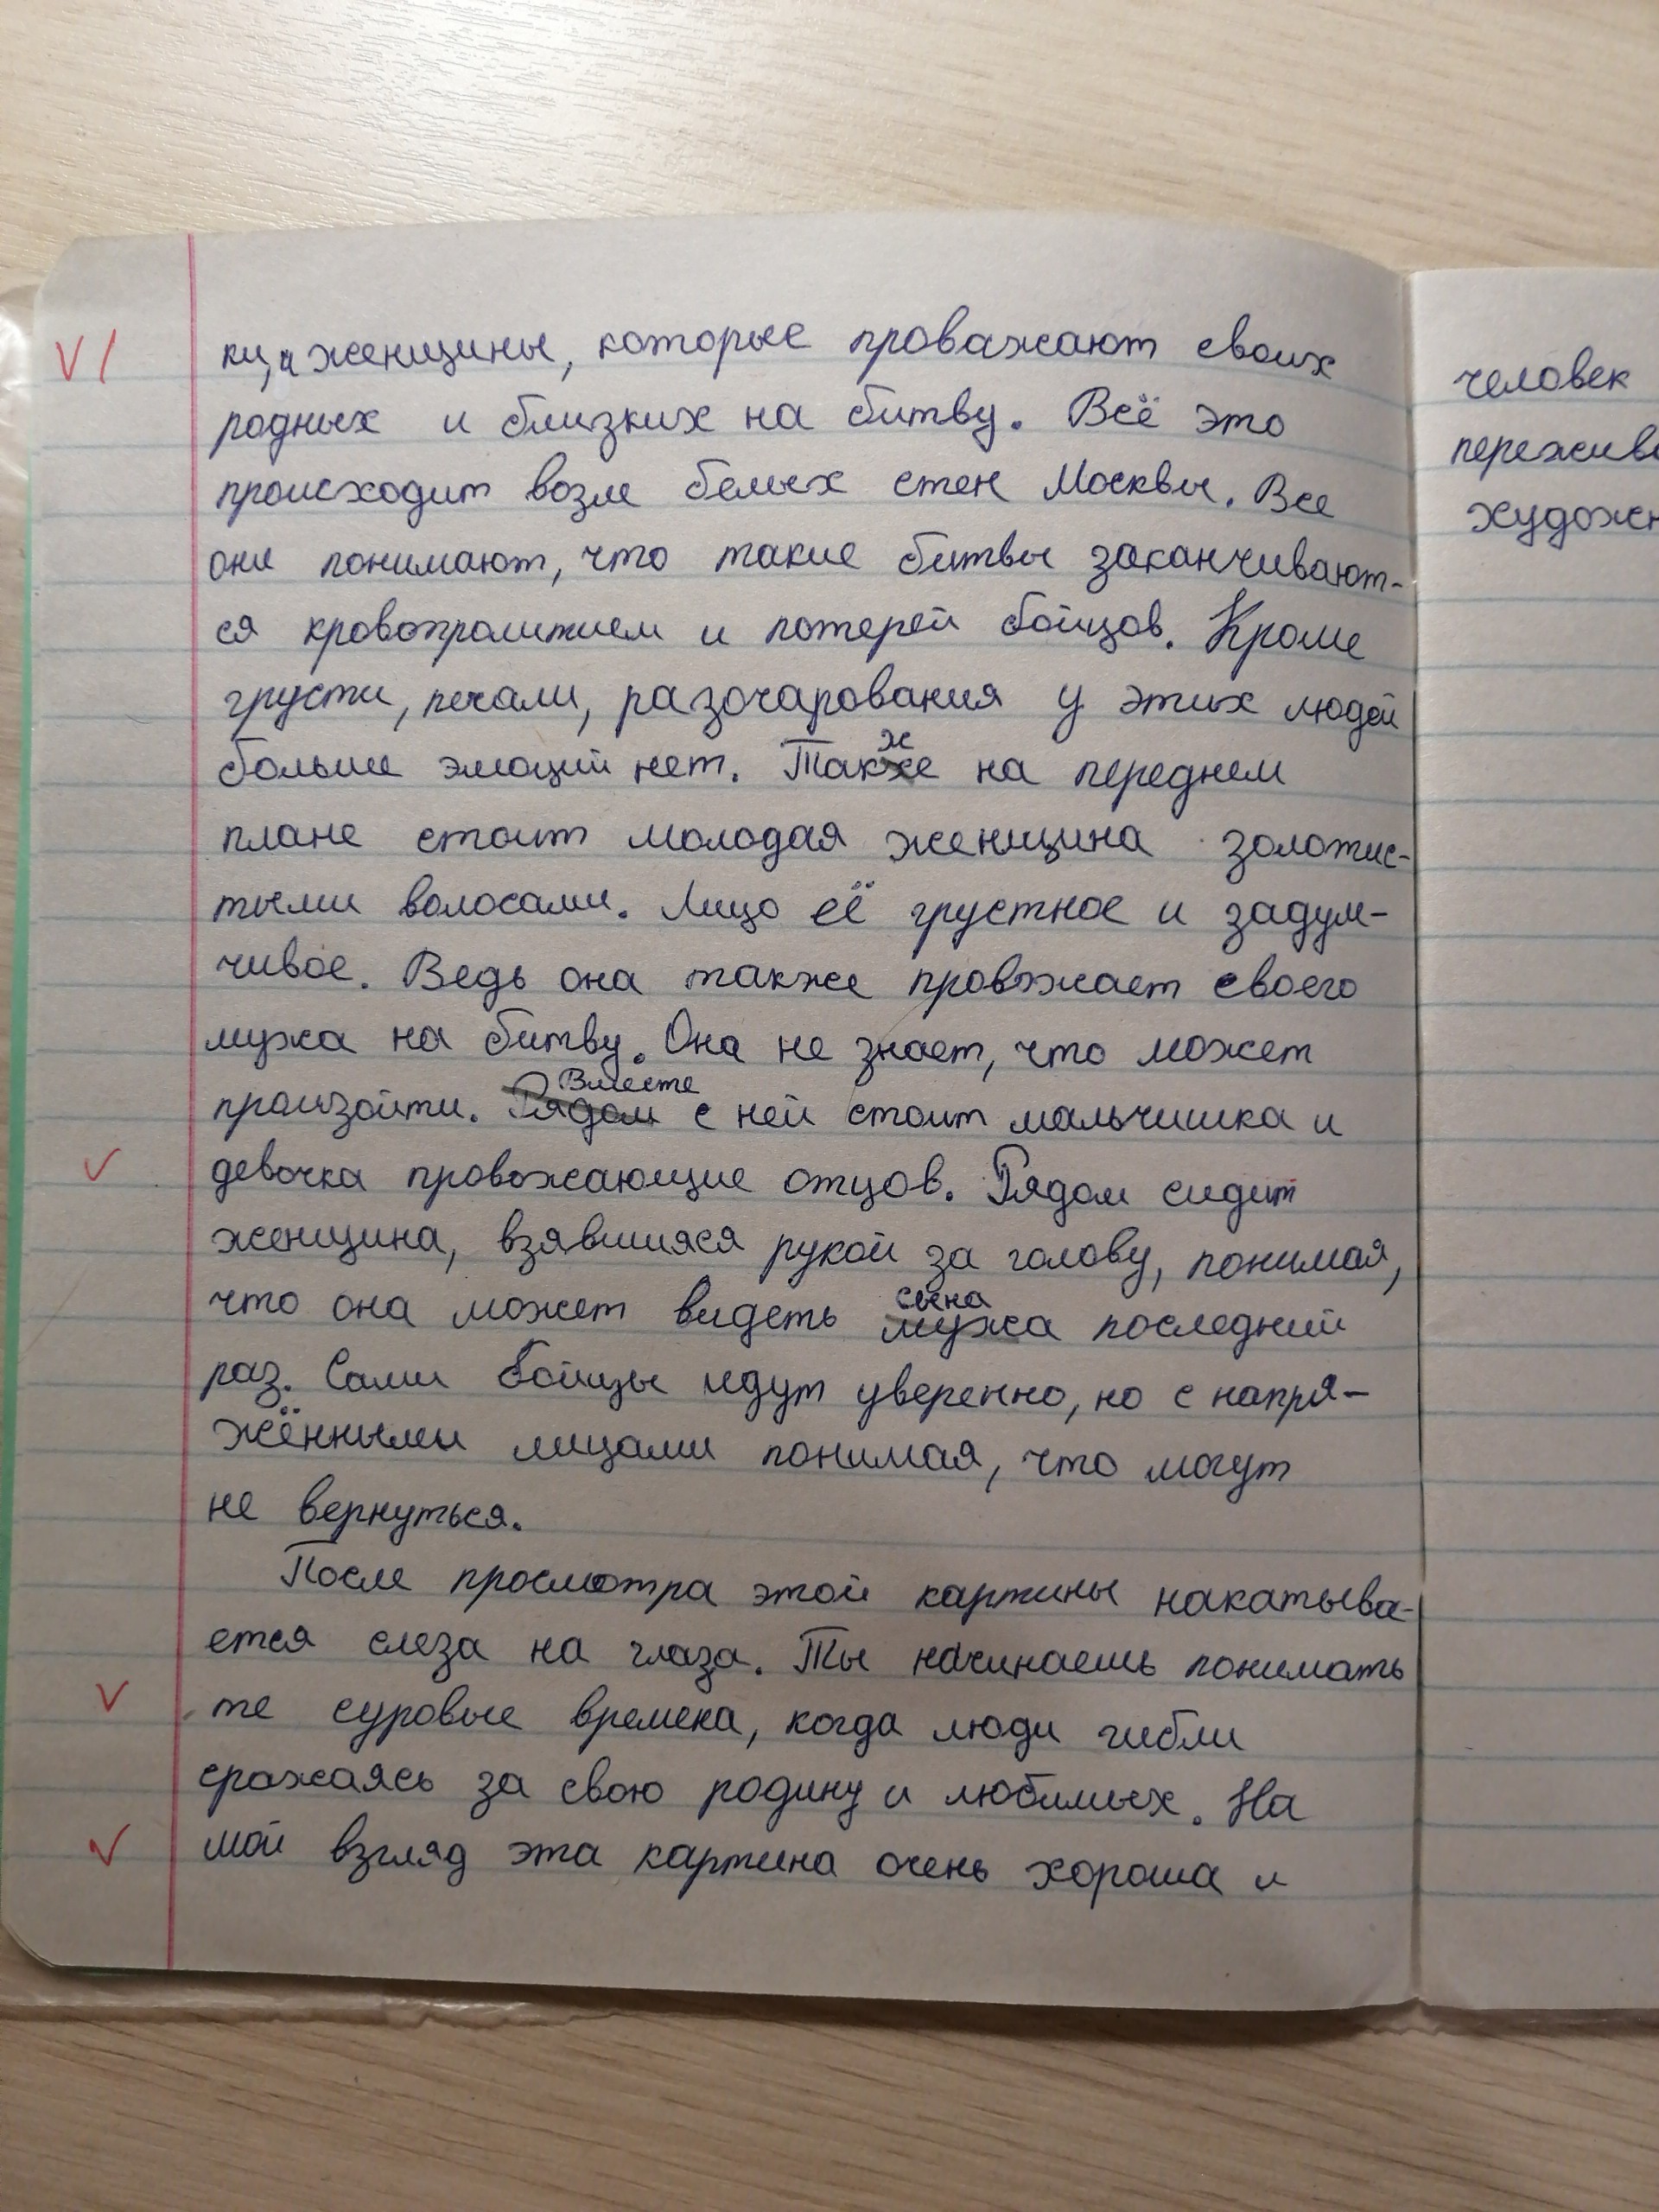 ки, и женщины, которые проважают своих
родных и близких на битву. Всё это
происходит возле белых стен Москвы. Все
они понимают, что такие битвы заканчивают-
ся кровопролитием и потерей бойцов. Кроме
грусти, печали, разочарования у этих людей
больше эмоций нет. Также на переднем
плане стоит молодая женщина золотис-
тыми волосами. Лицо её грустное и задум-
чивое. Ведь она также провожает своего
мужа на битву. Она не знает, что может
произойти. Вместе с ней стоит мальчишка и
девочка провожающие отцов. Рядом сидит
женщина, взявшияся рукой за голову, понимая,
что она может видеть сына последний
раз. Сами бойцы идут уверенно, но с напря-
жёнными лицами понимая, что могут
не вернуться.
После просмотра этой картины накатыва-
ется слеза на глаза. Ты начинаешь понимать
те суровые времена, когда люди гибли
сражаясь за свою родину и любимых. На
мой взгляд эта картина очень хороша и
человек
пережив
художн